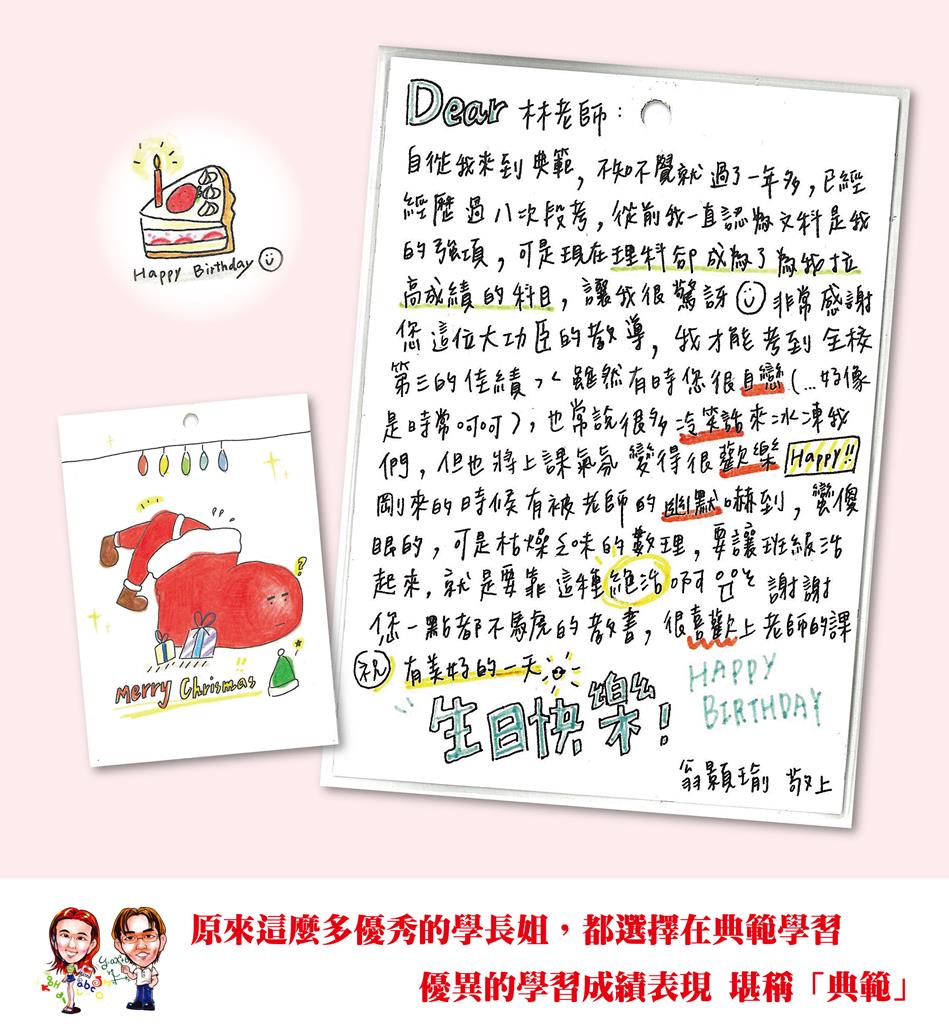 Happy Birthday
Dear 林老師：
自從我來到典範，不知不覺就過了一年多，已經
經歷過八次段考，從前我一直認為文科是我
的強項，可是現在理科卻成為了為我拉
高成績的科目，讓我很驚訝 非常感謝
您這位大功臣的教導，我才能考到全校
第三的佳績>< 雖然有時您很自戀(…好像
是時常呵呵)，也常說很多冷笑話來冰凍我
們，但也將上課氣氛變得很歡樂 Happy!!
剛來的時候有被老師的幽默嚇到，蠻傻
眼的，可是枯燥乏味的數理，要讓班級活
起來，就是要靠這種絕活啊 謝謝
您一點都不馬虎的教書，很喜歡上老師的課
祝 有美好的一天
生日快樂！
HAPPY
BIRTHDAY
翁顥瑜 敬上
Merry Chrismas
原來這麼多優秀的學長姐，都選擇在典範學習
優異的學習成績表現 堪稱「典範」